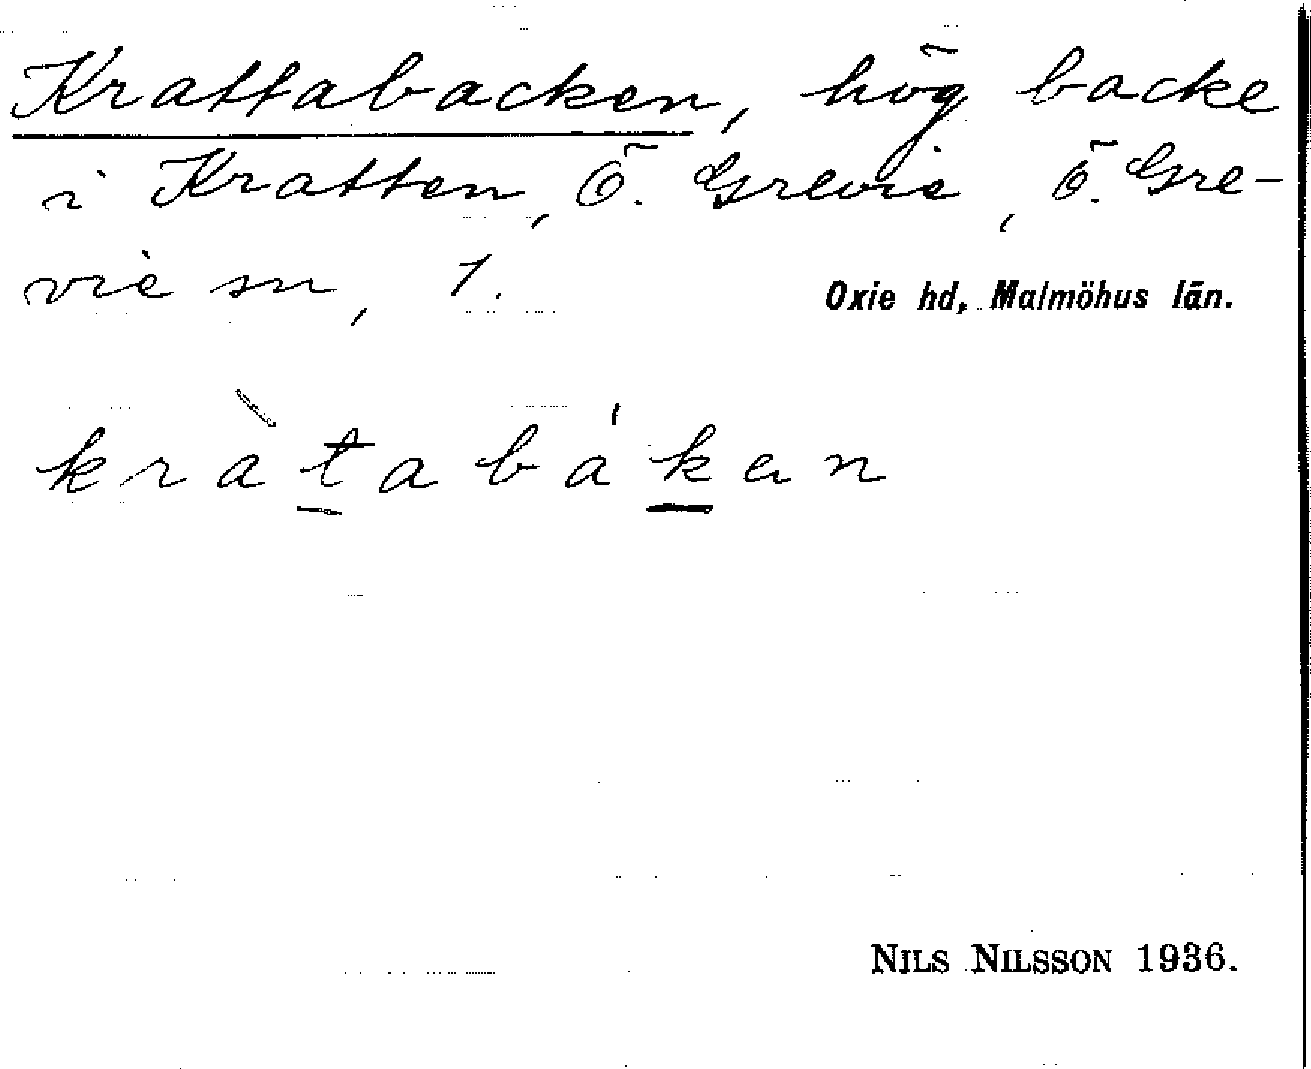 Krattabacken, hög backe
i Kratten, Ö. Grevie, Ö. Gre-
vie sn, 1.
Oxie hd, Malmöhus län.
kràtabákan
NILS NILSSON 1936.